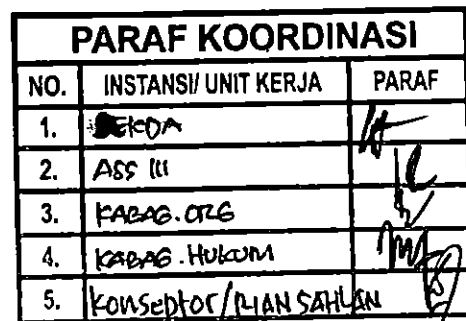 PARAF KOORDINASI
NO. INSTANSI/ UNIT KERJA PARAF
1. SEKDA
2. ASS III
3. KABAG.ORG
4. KABAG.HUKUM
5. Konseptor/RIAN SAHLAN